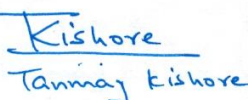 Kishore
Tanmay Kishore